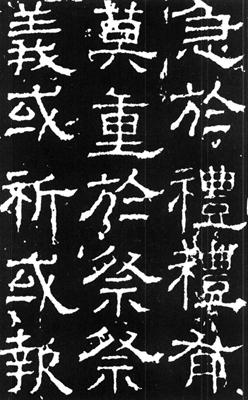 急於禮禮有
莫重於祭祭
義或祈或報